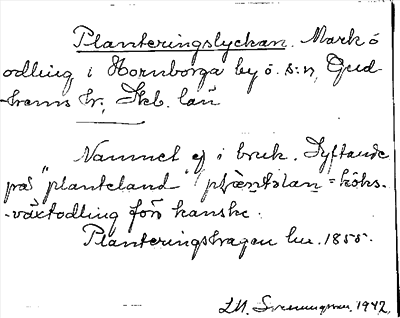 Planteringslyckan. Mark o
odling i Hornborga by o. s:n, Gud-
hems hd, Skb. län
Namnet ej i bruk. Syftande
på "planteland" = köks-
-växtodling förr kanske.
Planteringshagen lm. 1855.
1942.